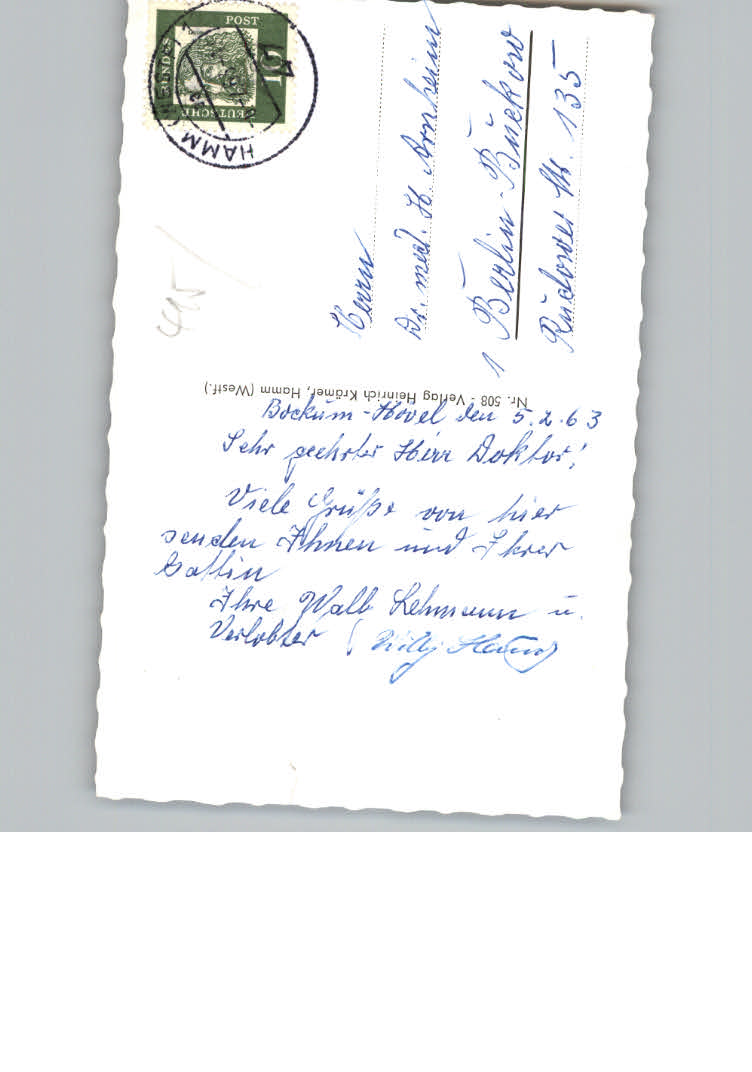 DEUTSCHE BUNDESPOST
10
HAMM
Herrn
Dr. med. H. Arnheim
1 Berlin-Buckow
Rudower Str. 135
Nr. 508 - Verlag Heinrich Krämer, Hamm (Westf.)
Bockum-Hövel den 5.2.63
Sehr geehrter Herr Doktor!
Viele Grüße von hier
senden Ihnen und Ihrer
Gattin
Ihre Walb Lehmann u.
Verlobter (Willy